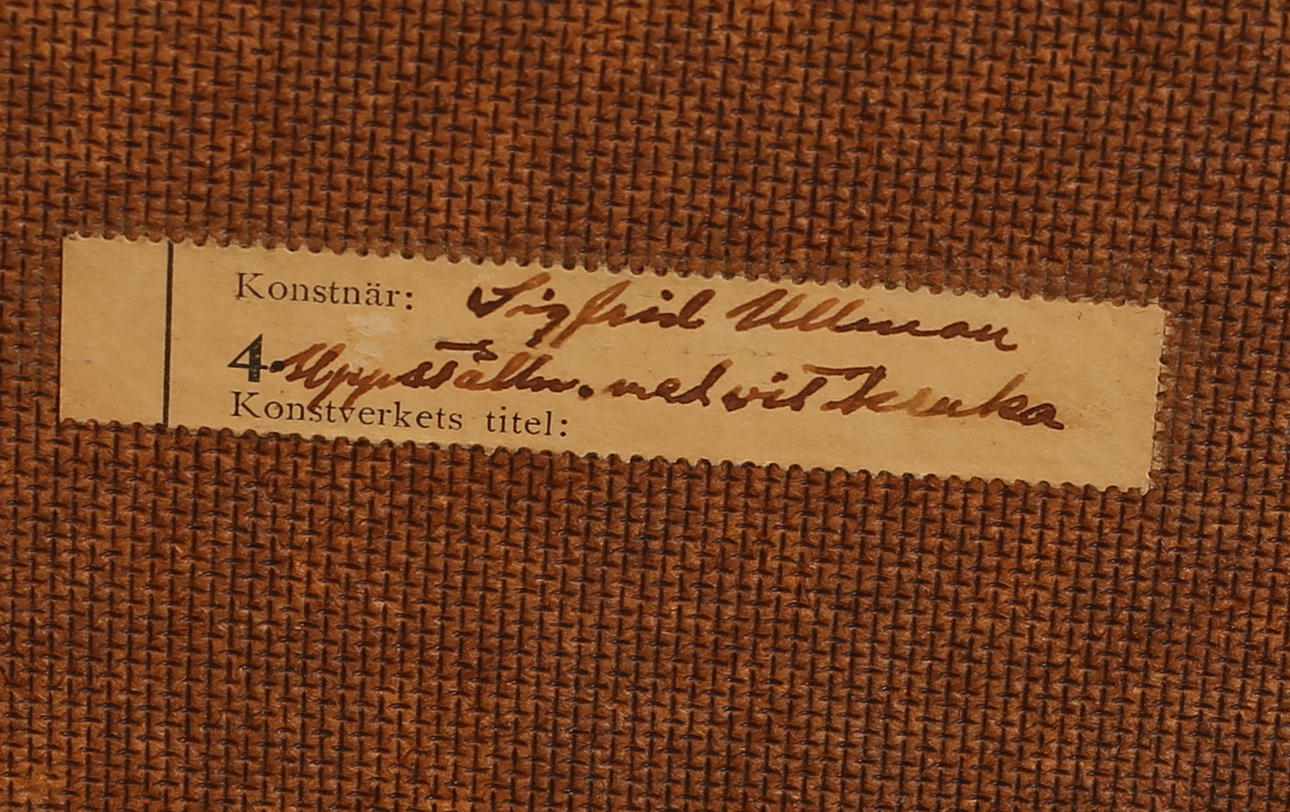 Konstnär: Sigfrid Ullman
4. Uppställn. med vit kruka
Konstverkets titel: